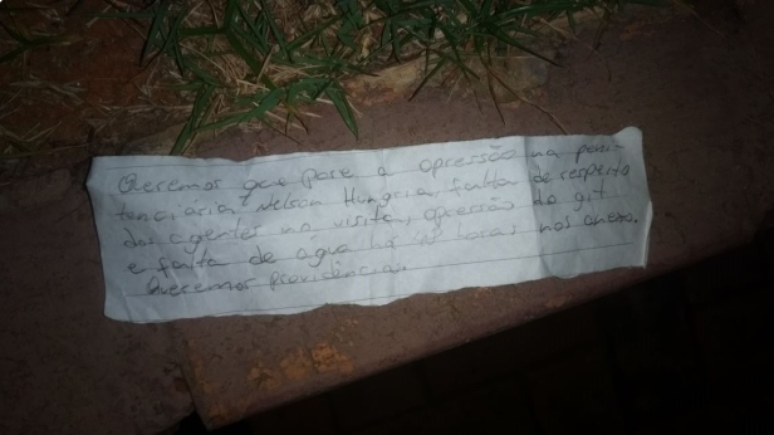 Queremos que pare a opressão na peni-
tenciária Nelson Hungria, falta de respeito
dos agentes na visita, opressão do git
e falta de água há horas nos anexo.
Queremos providências.